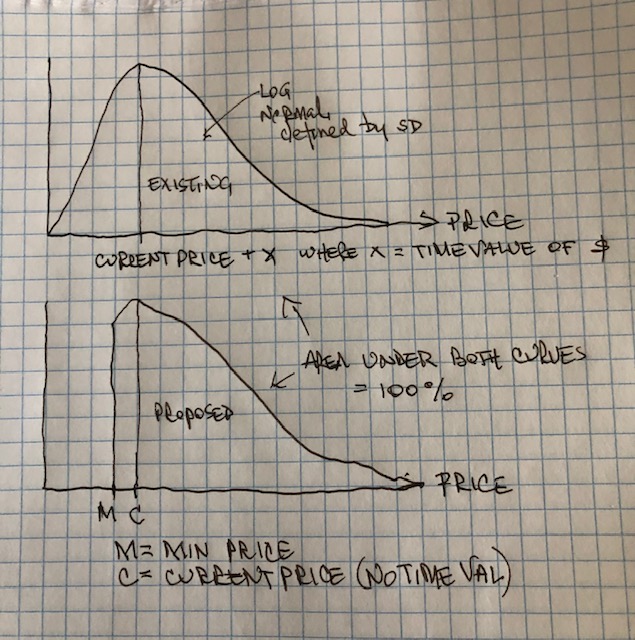 LOG
NORMAL
defined by SD
EXISTING
PRICE
CURRENT PRICE + X WHERE X = TIME VALUE OF $
AREA UNDER BOTH CURVES
= 100%
PROPOSED
PRICE
M C
M = MIN PRICE
C = CURRENT PRICE (NO TIME VAL)